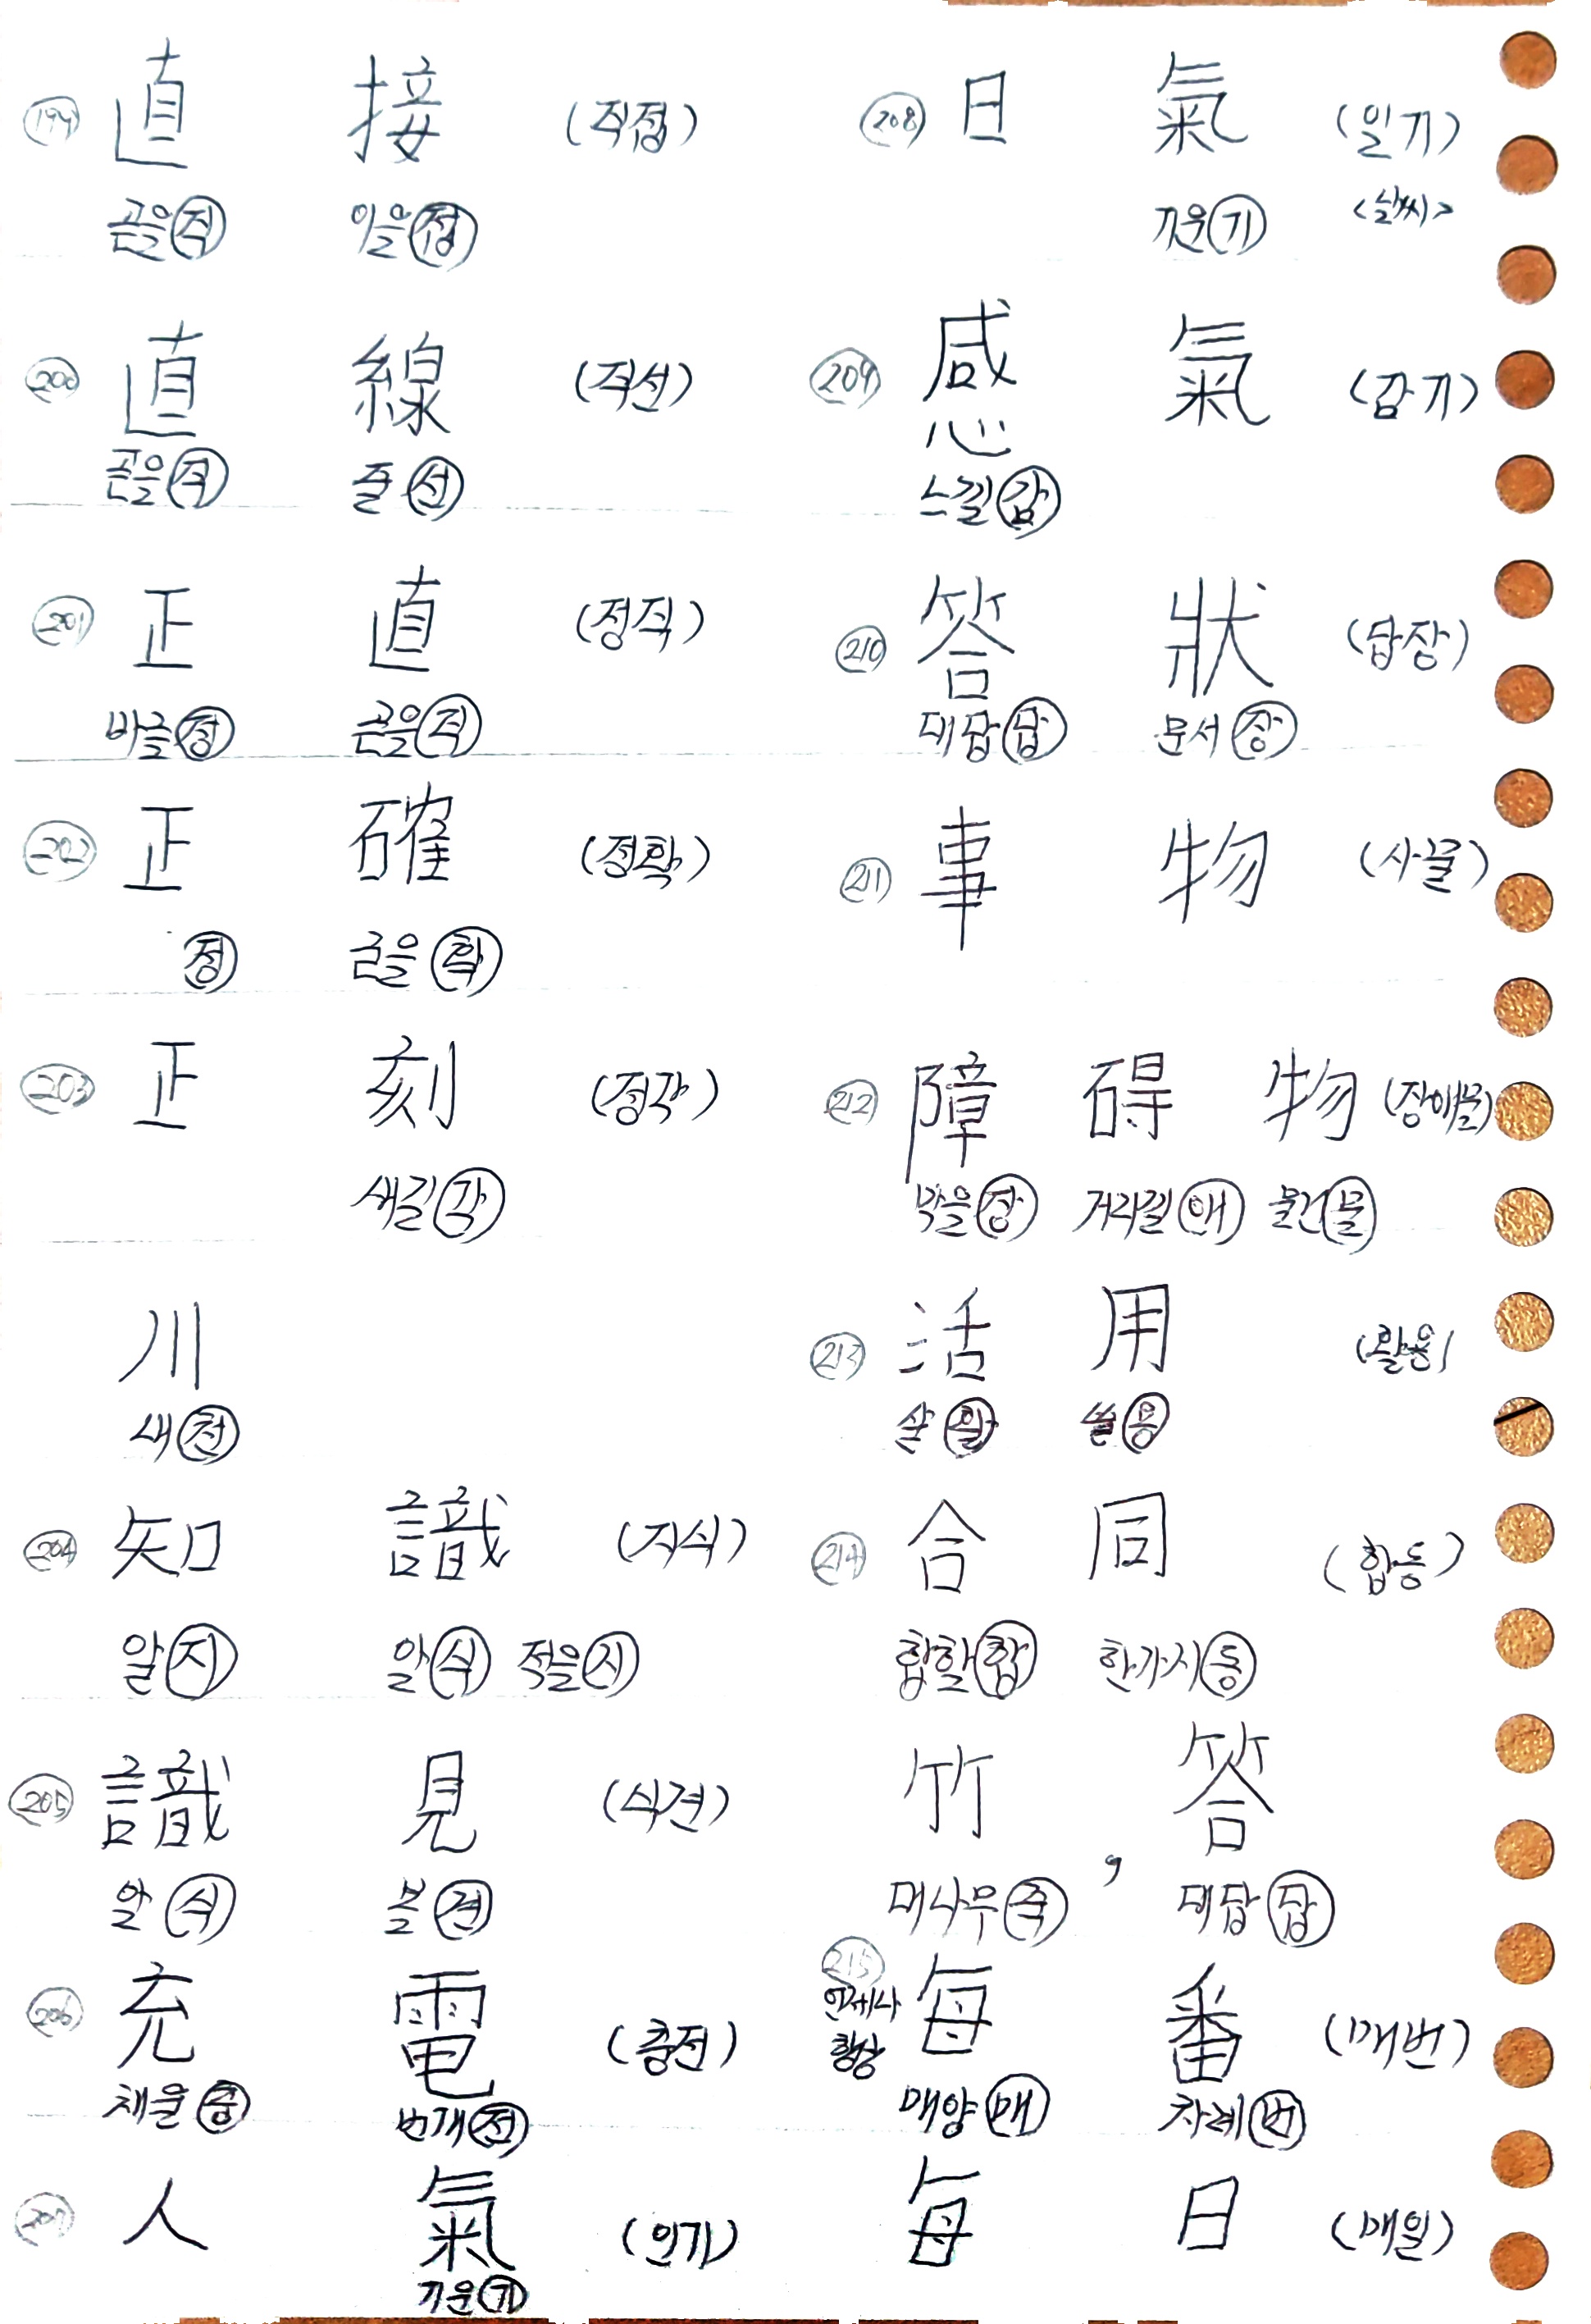 199 直 接 (직접)
곧을 직 이을 접
200 直 線 (직선)
곧을 직 줄 선
201 正 直 (정직)
바를 정 곧을 직
202 正 確 (정확)
정 굳을 확
203 正 刻 (정각)
새길 각
川
내 천
204 知 識 (지식)
알 지 알 식 적을 지
205 識 見 (식견)
알 식 볼 견
206 充 電 (충전)
채울 충 번개 전
207 人 氣 (인기)
기운 기
208 日 氣 (일기)
기운 기 <날씨>
209 感 氣 (감기)
느낄 감
210 答 狀 (답장)
대답 답 문서 장
211 事 物 (사물)
212 障 碍 物 (장애물)
막을 장 거리낄 애 물건 물
213 活 用 (활용)
살 활 쓸 용
214 合 同 (합동)
합할 합 한가지 동
竹 , 答
대나무 죽 대답 답
215 每 番 (매번)
언제나
항상
매양 매 차례 번
每 日 (매일)